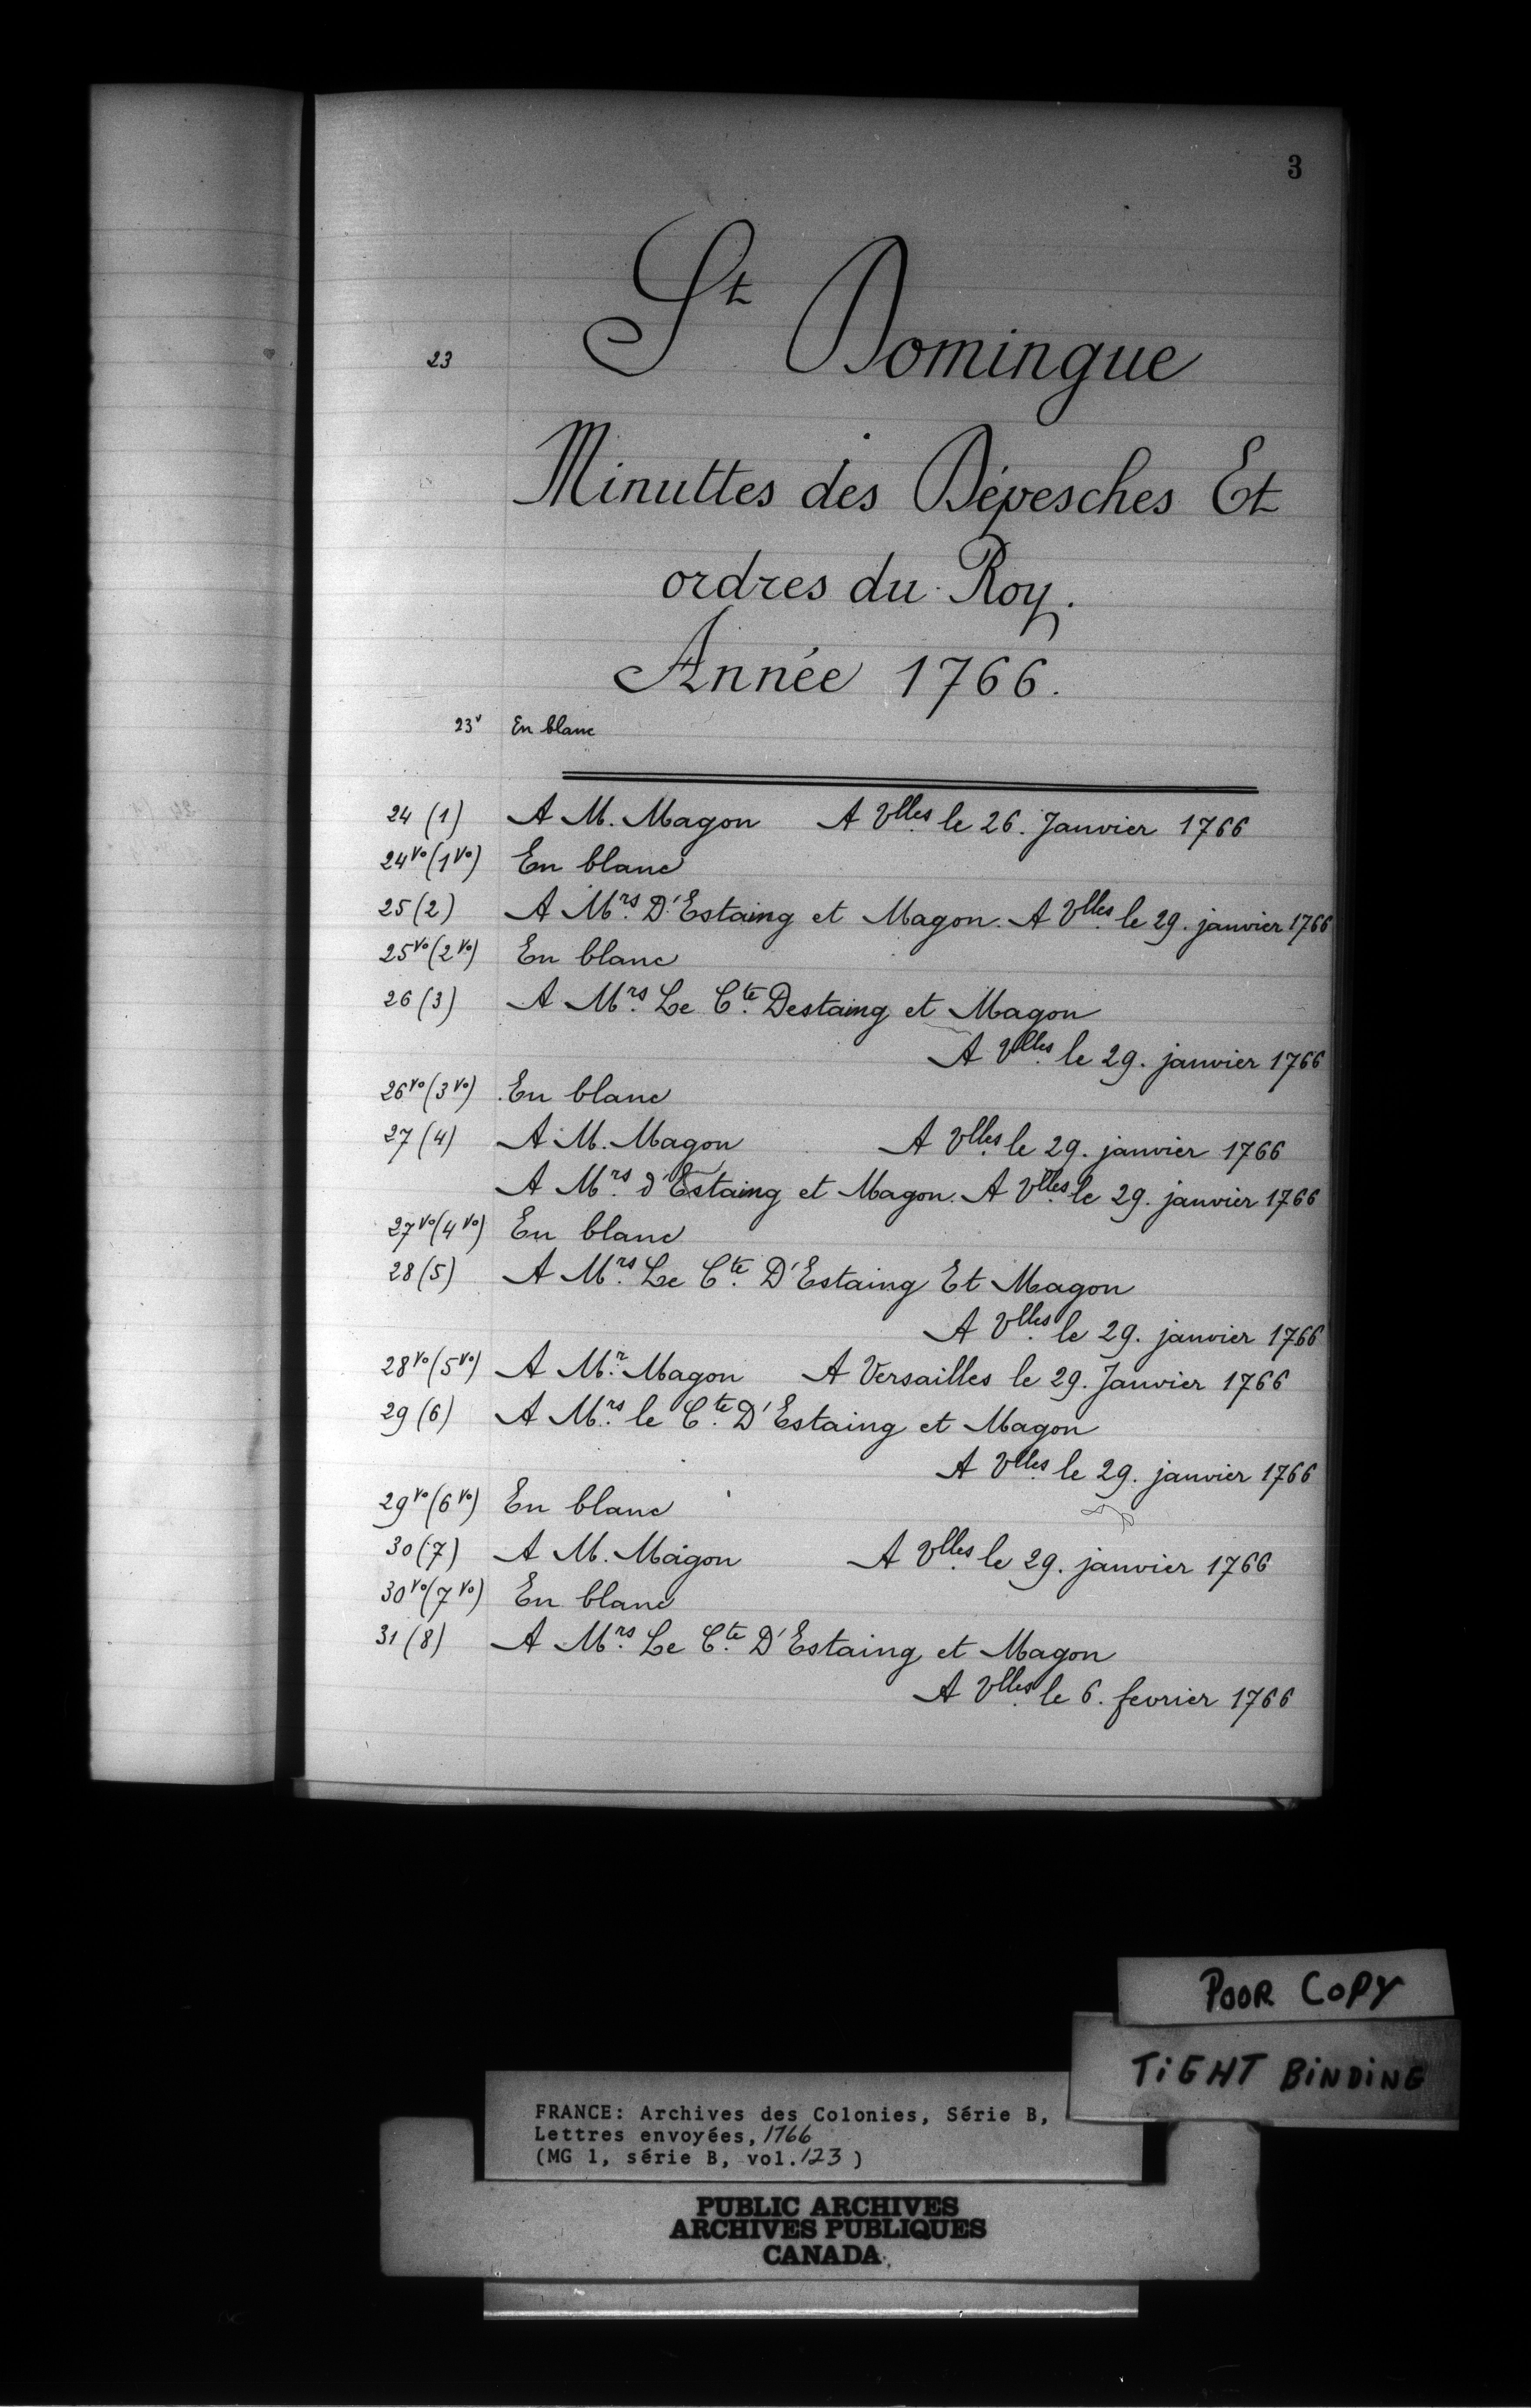 3
23 St Domingue
Minuttes des Dépesches Et
ordres du Roy.
Année 1766.
23v En blanc
24 (1) A M. Magon A Vlles le 26. Janvier 1766
24vo (1vo) En blanc
25 (2) A Mrs. D'Estaing et Magon. A Vlles. le 29. janvier 1766
25vo (2vo) En blanc
26 (3) A Mrs. Le Cte. Destaing et Magon
A Vlles. le 29. janvier 1766
26vo (3vo) En blanc
27 (4) A M. Magon A Vlles. le 29. janvier 1766
A Mrs. d'Estaing et Magon. A Vlles. le 29. janvier 1766
27vo (4vo) En blanc
28 (5) A Mrs. Le Cte. D'Estaing Et Magon
A Vlles. le 29. janvier 1766
28vo (5vo) A Mr. Magon A Versailles le 29. Janvier 1766
29 (6) A Mrs. le Cte. D'Estaing et Magon
A Vlles. le 29. janvier 1766
29vo (6vo) En blanc
30 (7) A M. Magon A Vlles. le 29. janvier 1766
30vo (7vo) En blanc
31 (8) A Mrs. Le Cte. D'Estaing et Magon
A Vlles. le 6. fevrier 1766
POOR COPY
TIGHT BINDING
FRANCE: Archives des Colonies, Série B,
Lettres envoyées, 1766
(MG 1, série B, vol. 123)
PUBLIC ARCHIVES
ARCHIVES PUBLIQUES
CANADA